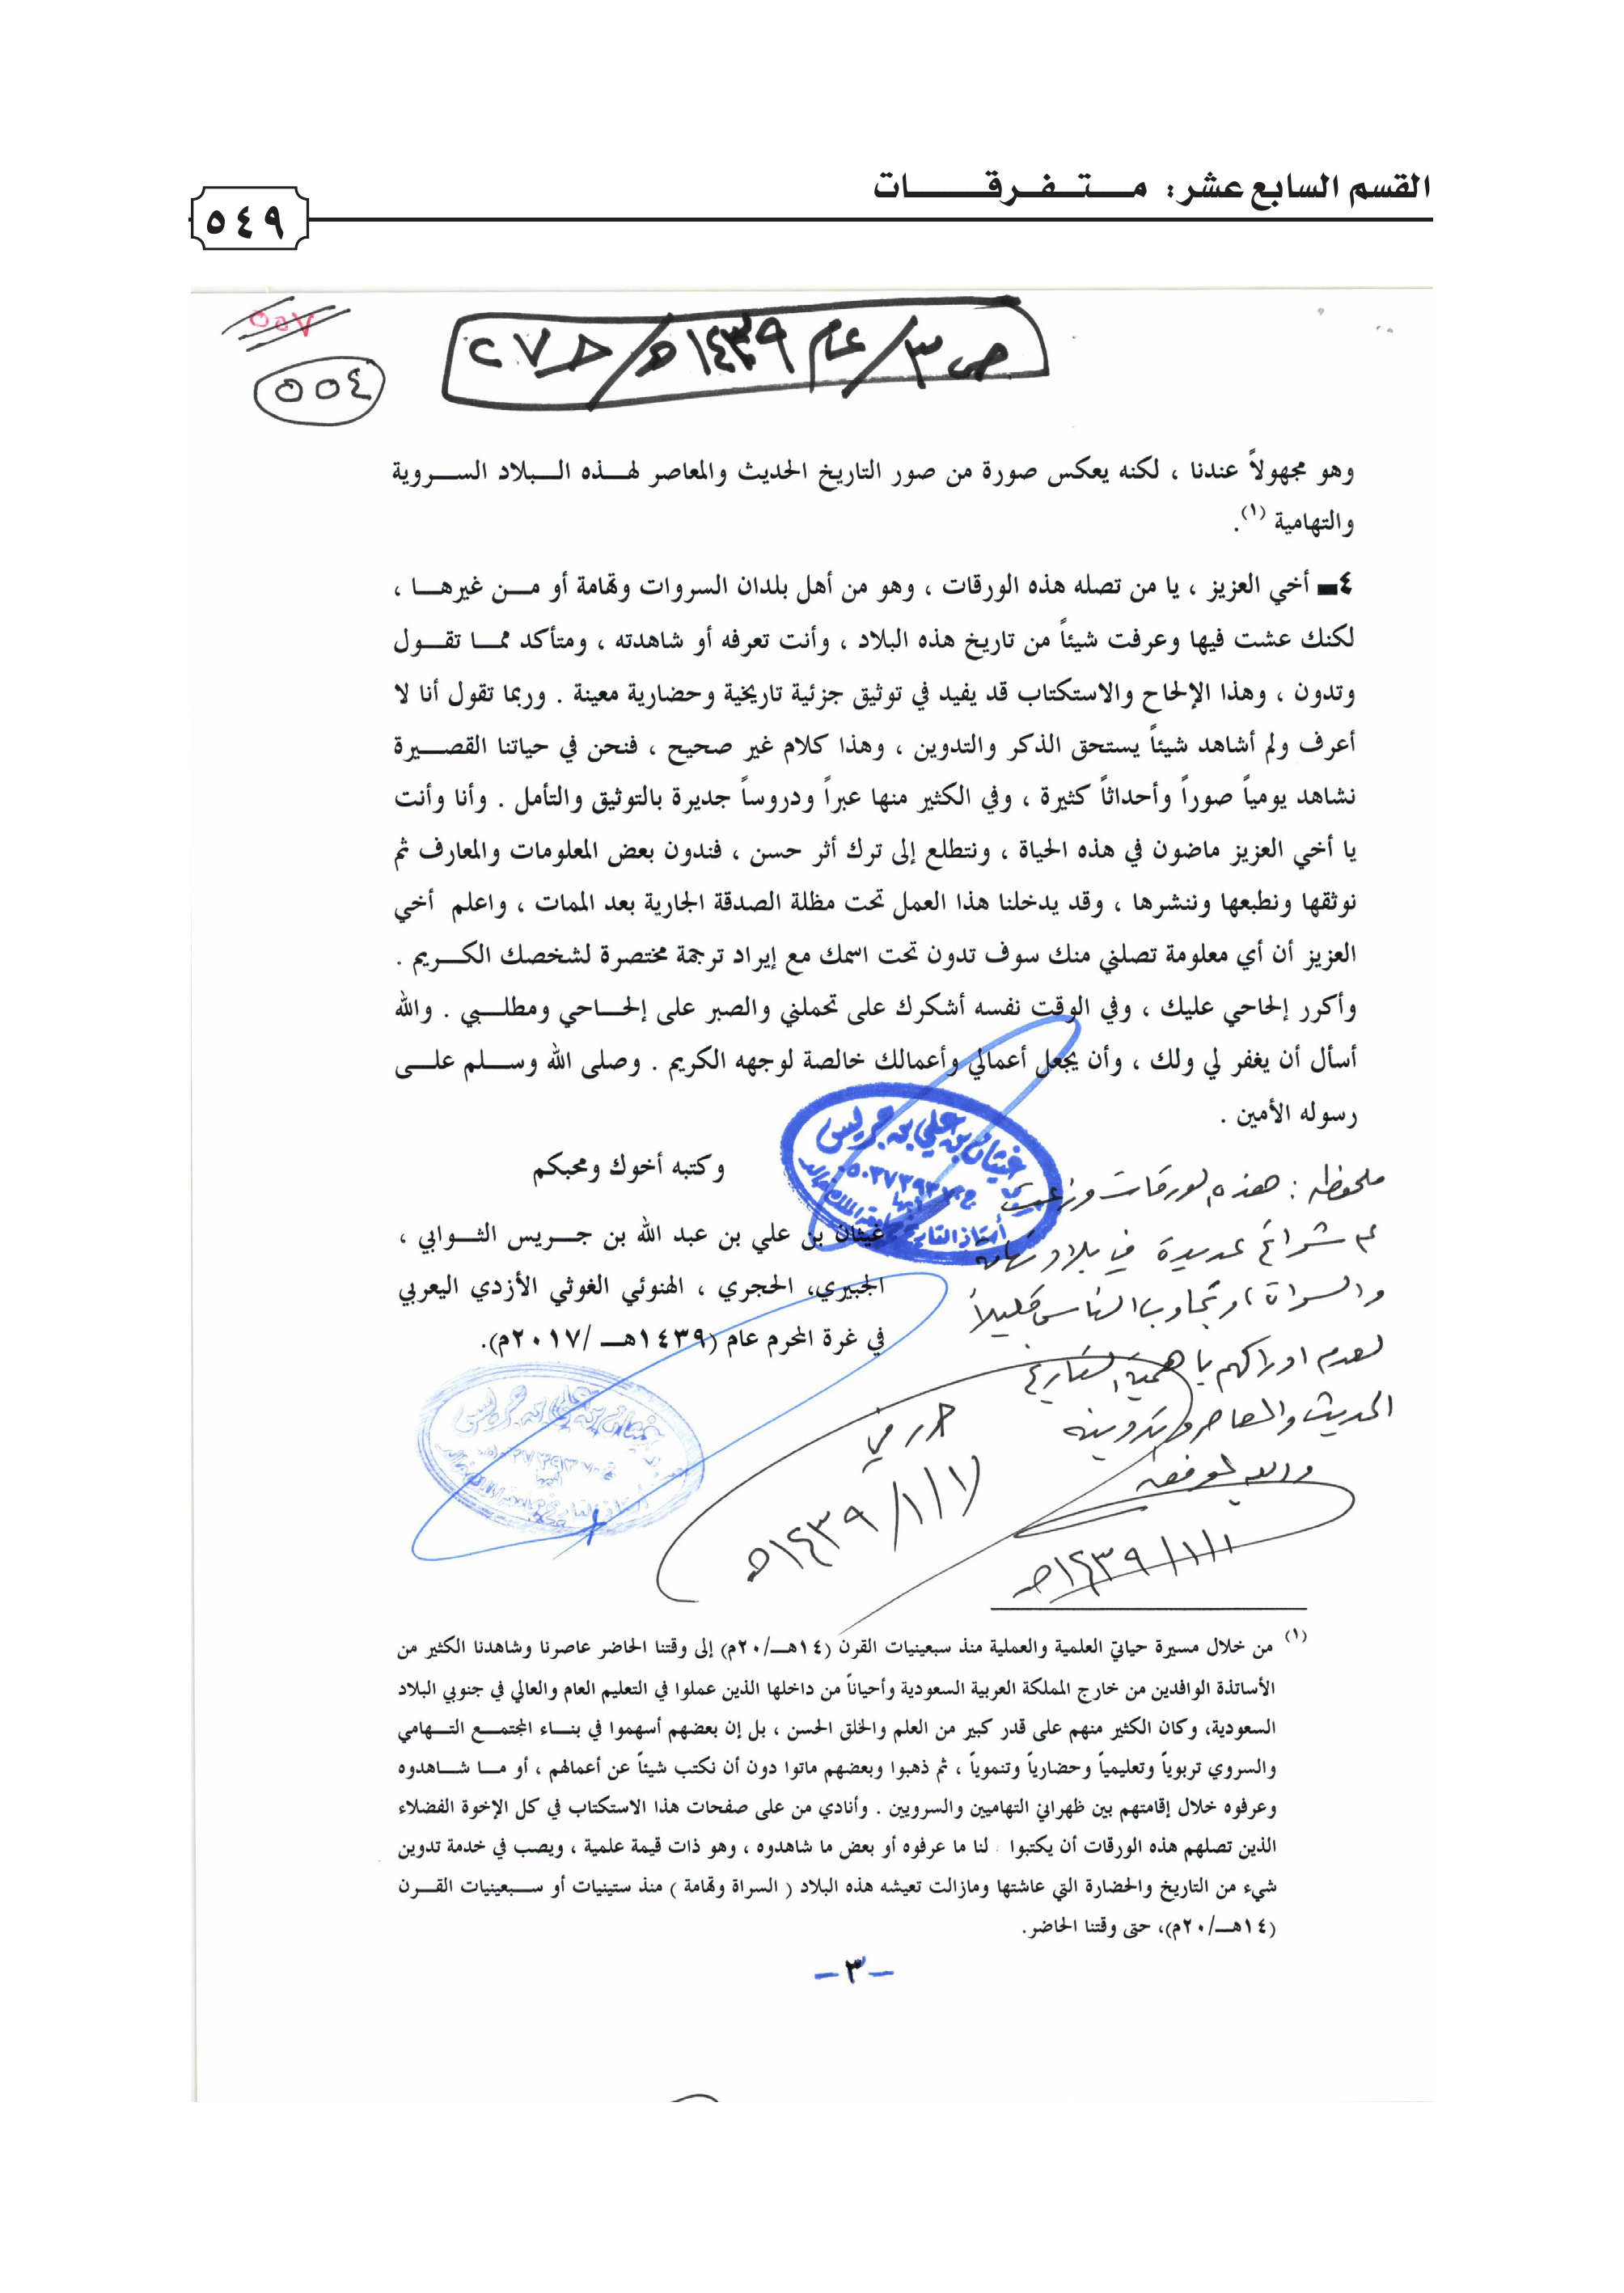 القسم السابع عشر: متفرقات
٥٤٩
٥٥٧
٥٥٤
ص٣/عام ١٤٣٩هـ/حـ٢٧
وهو مجهولاً عندنا ، لكنه يعكس صورة من صور التاريخ الحديث والمعاصر لهذه البلاد السروية
والتهامية (١).
٤ـ أخي العزيز ، يا من تصله هذه الورقات ، وهو من أهل بلدان السروات وتهامة أو من غيرها ،
لكنك عشت فيها وعرفت شيئاً من تاريخ هذه البلاد ، وأنت تعرفه أو شاهدته ، ومتأكد مما تقول
وتدون ، وهذا الإلحاح والاستكتاب قد يفيد في توثيق جزئية تاريخية وحضارية معينة . وربما تقول أنا لا
أعرف ولم أشاهد شيئاً يستحق الذكر والتدوين ، وهذا كلام غير صحيح ، فنحن في حياتنا القصيرة
نشاهد يومياً صوراً وأحداثاً كثيرة ، وفي الكثير منها عبراً ودروساً جديرة بالتوثيق والتأمل . وأنا وأنت
يا أخي العزيز ماضون في هذه الحياة ، ونتطلع إلى ترك أثر حسن ، فندون بعض المعلومات والمعارف ثم
نوثقها ونطبعها وننشرها ، وقد يدخلنا هذا العمل تحت مظلة الصدقة الجارية بعد الممات ، واعلم أخي
العزيز أن أي معلومة تصلني منك سوف تدون تحت اسمك مع إيراد ترجمة مختصرة لشخصك الكريم .
وأكرر إلحاحي عليك ، وفي الوقت نفسه أشكرك على تحملني والصبر على إلحاحي ومطلبي . والله
أسأل أن يغفر لي ولك ، وأن يجعل أعمالي وأعمالك خالصة لوجهه الكريم . وصلى الله وسلم على
رسوله الأمين .
وكتبه أخوك ومحبكم
غيثان بن علي بن عبد الله بن جريس الثوابي ،
الجبيري، الحجري ، الهنوئي الغوثي الأزدي اليعربي
في غرة المحرم عام (١٤٣٩هـ /٢٠١٧م).
غيثان بن علي بن جريس
أستاذ التاريخ
ملحوظه : هذه الورقات وزعت
على شرائح عديدة في بلاد تهامه
والسراة ، وتجاوب الناس قليلاً
لعدم ادراكهم بأهمية التاريخ
الحديث والمعاصر وتدوينه
والله الموفق
١/١/١٤٣٩هـ
حرر في
١/١/١٤٣٩هـ
(١) من خلال مسيرة حياتي العلمية والعملية منذ سبعينيات القرن (١٤هـ/٢٠م) إلى وقتنا الحاضر عاصرنا وشاهدنا الكثير من
الأساتذة الوافدين من خارج المملكة العربية السعودية وأحياناً من داخلها الذين عملوا في التعليم العام والعالي في جنوبي البلاد
السعودية، وكان الكثير منهم على قدر كبير من العلم والخلق الحسن ، بل إن بعضهم أسهموا في بناء المجتمع التهامي
والسروي تربوياً وتعليمياً وحضارياً وتنموياً ، ثم ذهبوا وبعضهم ماتوا دون أن نكتب شيئاً عن أعمالهم ، أو ما شاهدوه
وعرفوه خلال إقامتهم بين ظهراني التهاميين والسرويين . وأنادي من على صفحات هذا الاستكتاب في كل الإخوة الفضلاء
الذين تصلهم هذه الورقات أن يكتبوا لنا ما عرفوه أو بعض ما شاهدوه ، وهو ذات قيمة علمية ، ويصب في خدمة تدوين
شيء من التاريخ والحضارة التي عاشتها ومازالت تعيشه هذه البلاد ( السراة وتهامة ) منذ ستينيات أو سبعينيات القرن
(١٤هـ/٢٠م)، حتى وقتنا الحاضر.
- ٣ -